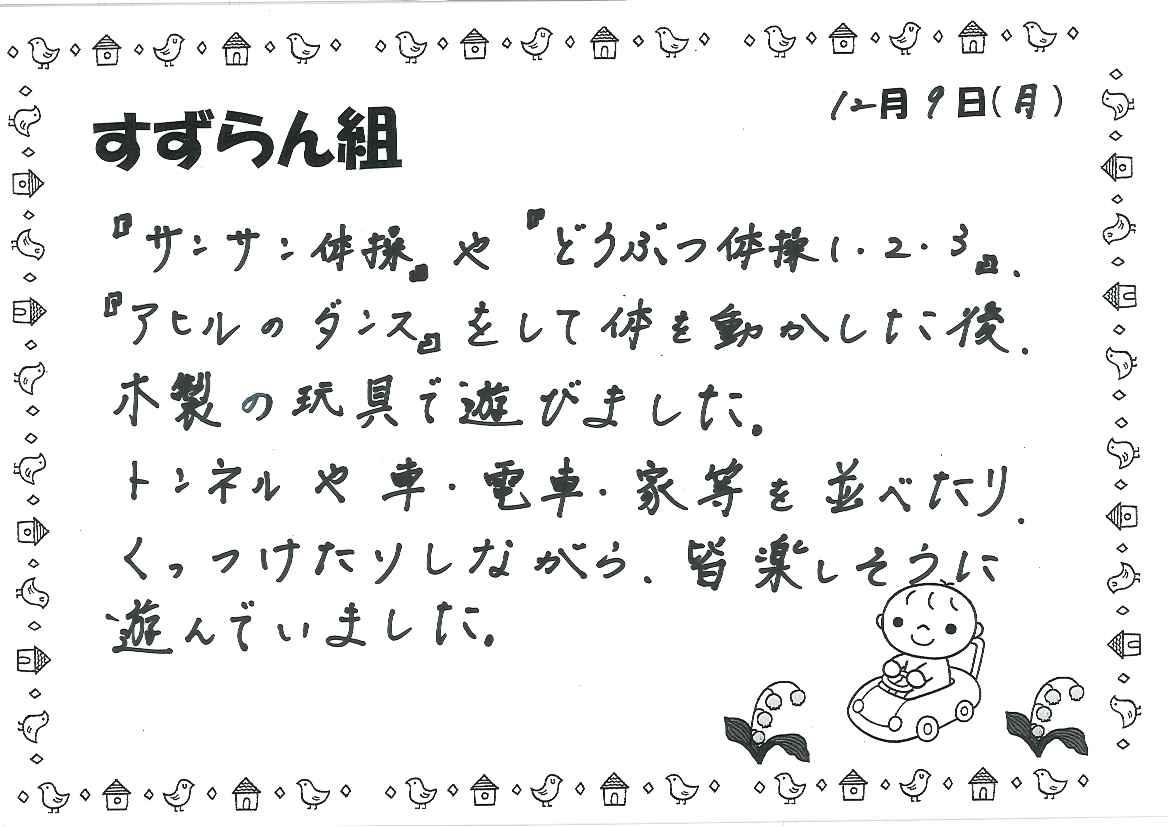 12月9日(月)
すずらん組
『サンサン体操』や『どうぶつ体操1・2・3』、
『アヒルのダンス』をして体を動かした後、
木製の玩具で遊びました。
トンネルや車・電車・家等を並べたり、
くっつけたりしながら、皆楽しそうに
遊んでいました。